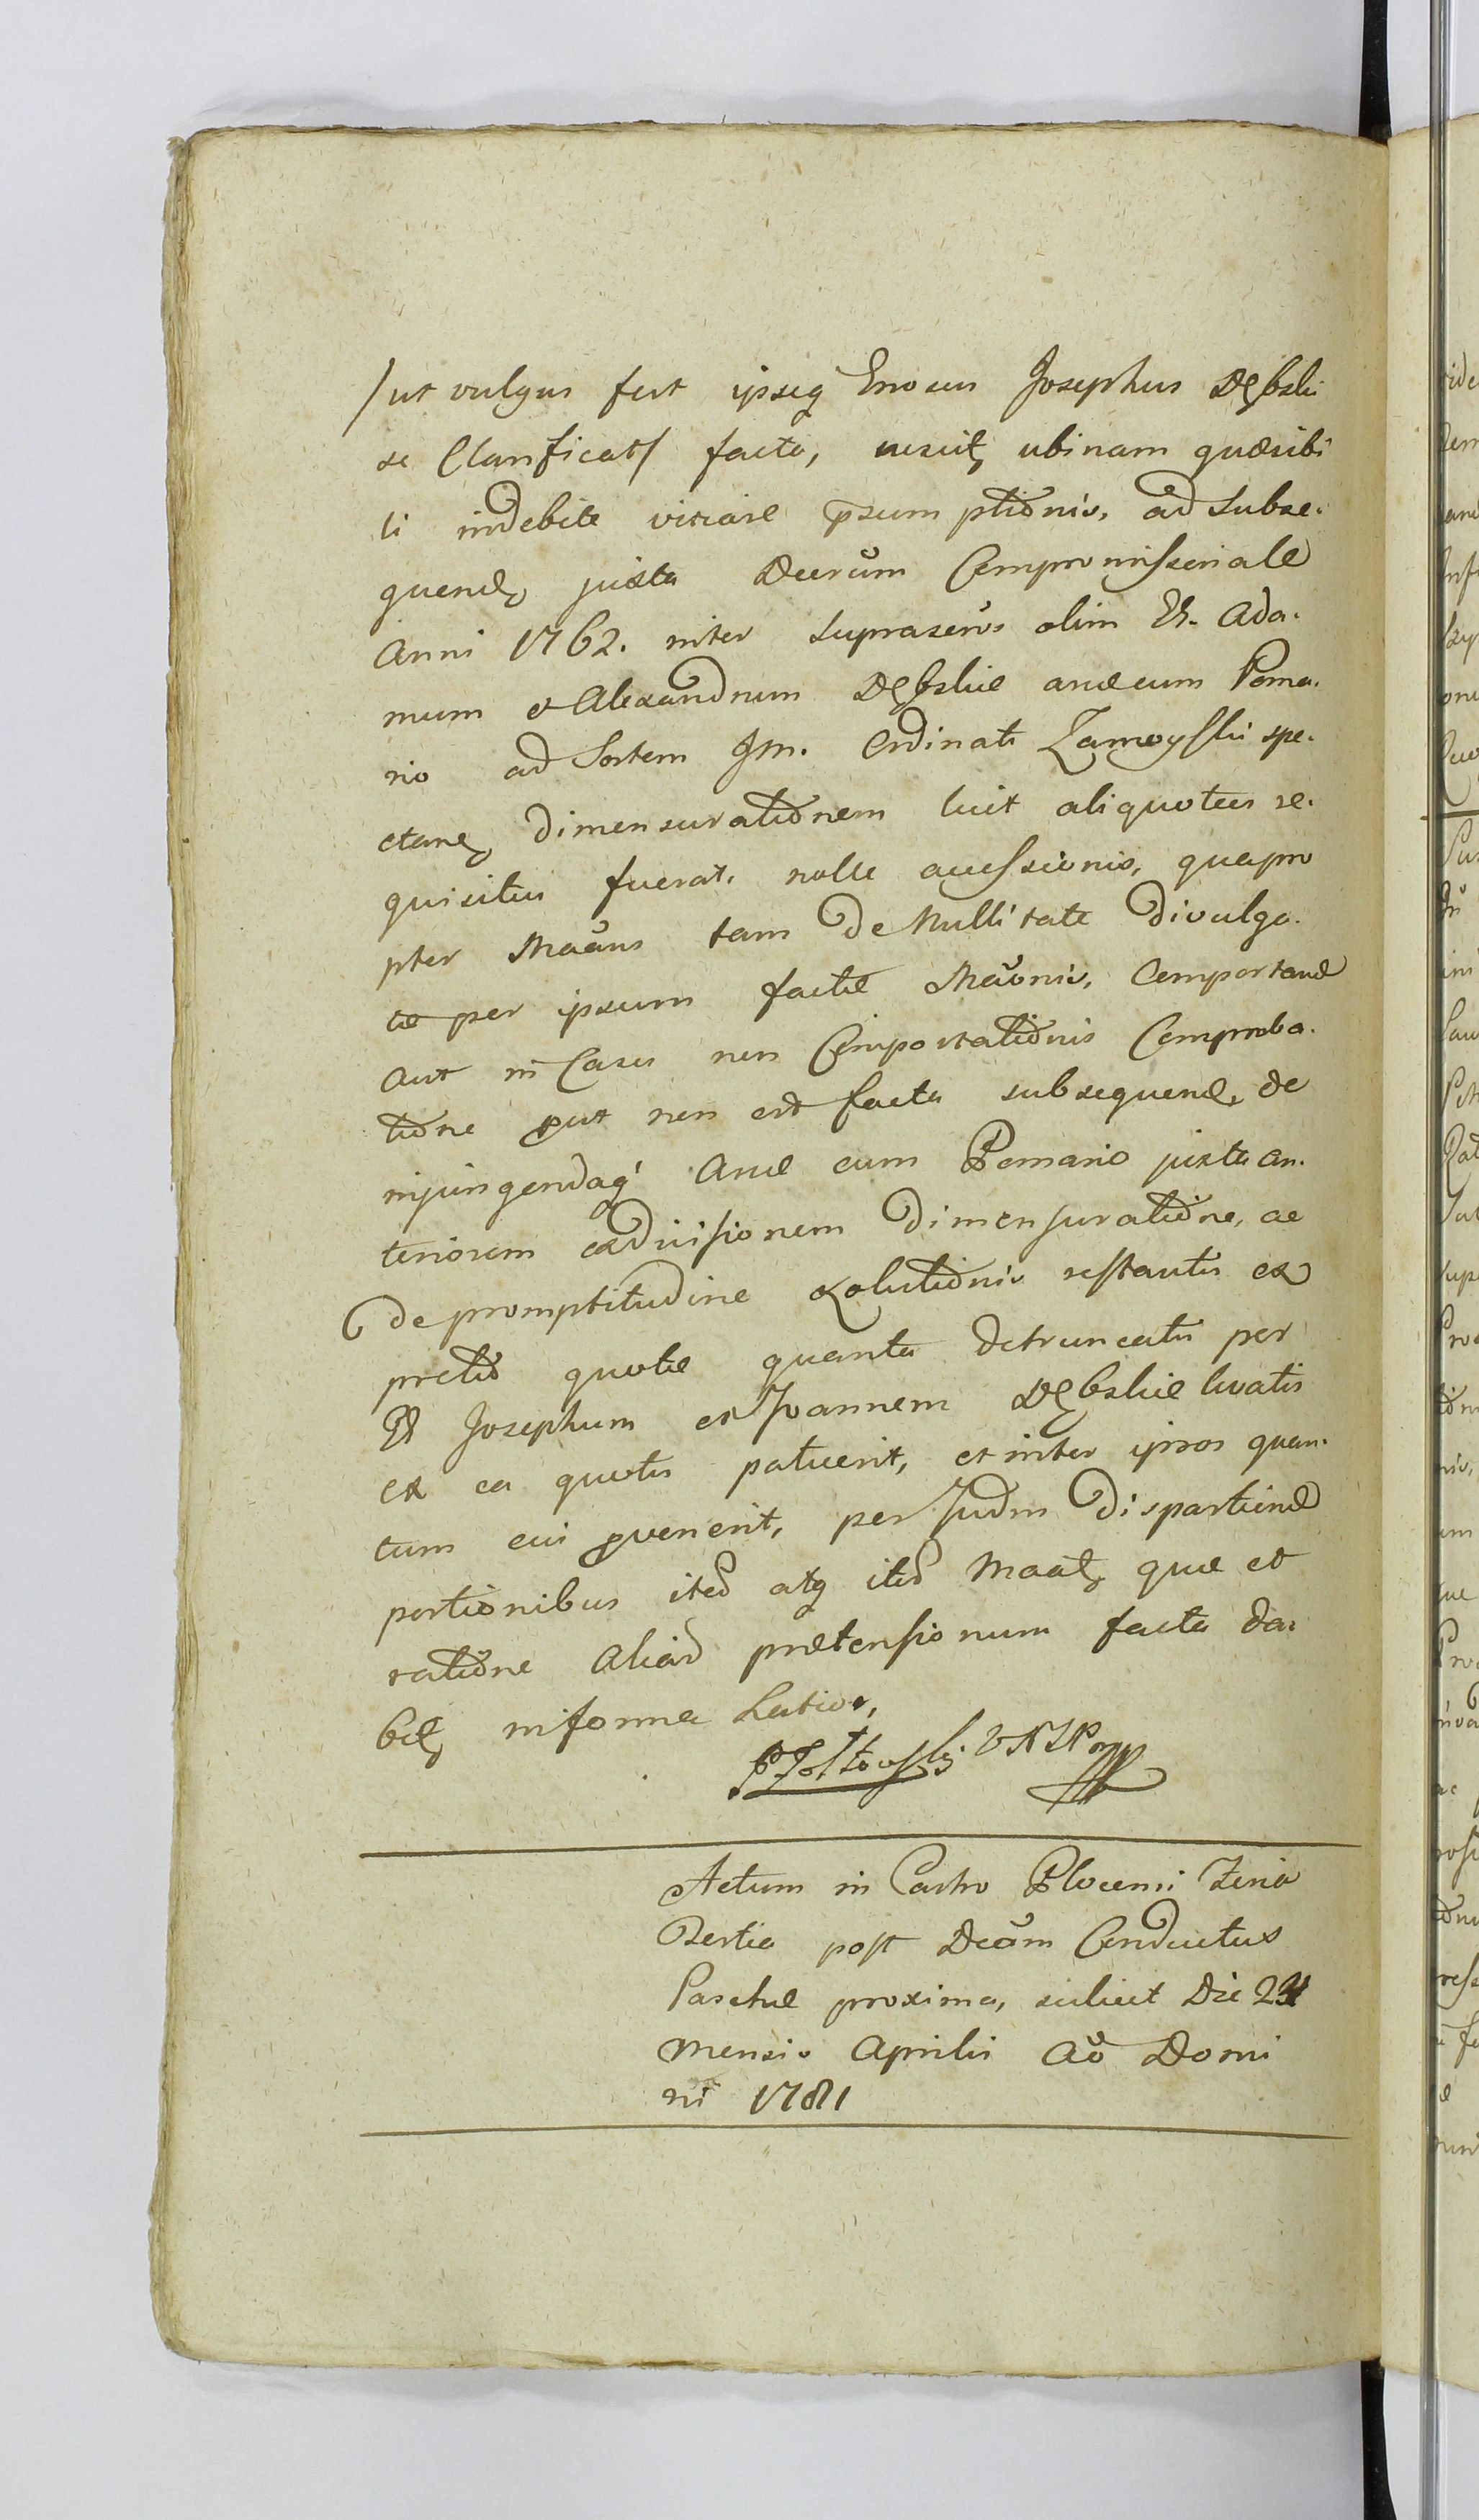 /ut vulgus fert ipseq Gnosus Josephus Dębski
se Clarificat/ facta, nescit, ubinam quæsibi
li indebite viciare psumptionis, ad subse-
quend, juxta Decrum Compromissoriale
Anni 1762. inter suprascros olim G. Ada-
mum et Alexandrum Dębskie areæ cum Poma-
rio ad Sortem Jm. Ordinati Zamoyski spe-
ctane, dimensurationem licet aliquoties re-
quisitus fuerat, nolle accessionis, quapro
pter Maāns tam de Nullitate divulga-
tæ per ipsum factæ Māonis, Comportand
aut in Casu non Comportationis Comproba-
tione put non est facta subsequend, de
injungendaq Areæ cum Pomario juxta an-
teriorem exdivisionem dimensuratione, ac
de promptitudine exolutionis restantis ex
pretio quotæ quanta detruncatis per
G Josephum et Joannem Dębskie levatis
ex ea quotis patuerit, et inter ipsos quan-
tum cui pvenerit, per Judm dispartiend
portionibus ited atq ited Maat, quæ et
ratione aliard prætensionum facta da-
bit, in forma Latior,
P Zołtowski VNSP mpp
Actum in Castro Plocensi Feria
Tertia post Dcam Conductus
Paschæ proxima, scilicet Die 24
Mensis Aprilis Ao Domi
ni 1781